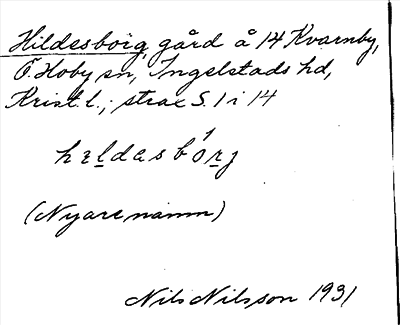 Hildesborg, gård å 14 Kvarnby,
Ö. Hoby sn, Ingelstads hd,
Krist. l.; strax S. 1 i 14
hıldasbórg
(Nyare namn)
Nils Nilsson 1931